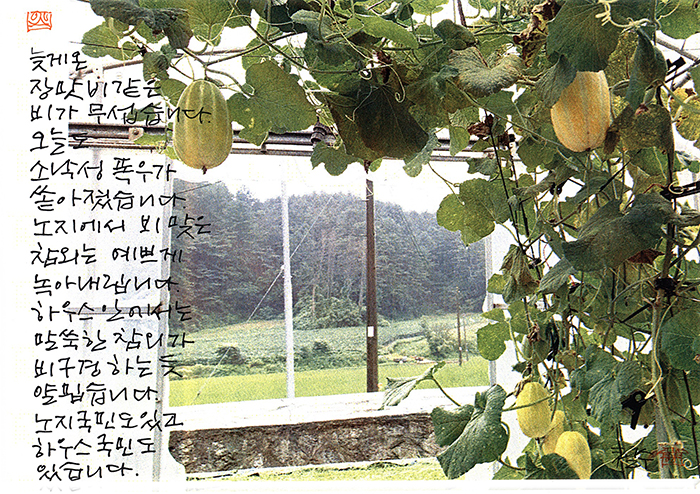 늦게 온
장맛비 같은
비가 무섭습니다.
오늘도
소낙성 폭우가
쏟아졌습니다
노지에서 비 맞은
참외는 예쁘게
녹아내립니다
하우스 안에서는
말쑥한 참외가
비구경 하는 듯
얄밉습니다.
노지국민도 있고
하우스 국민도
있습니다.